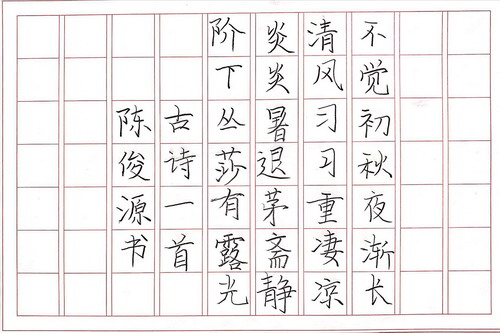 不觉初秋夜渐长
清风习习重凄凉
炎炎暑退茅斋静
阶下丛莎有露光
古诗一首
陈俊源书